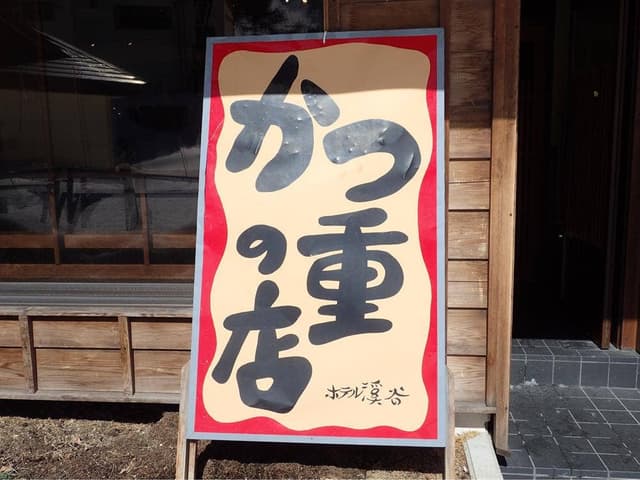 かつ重
の店
ホテル溪谷